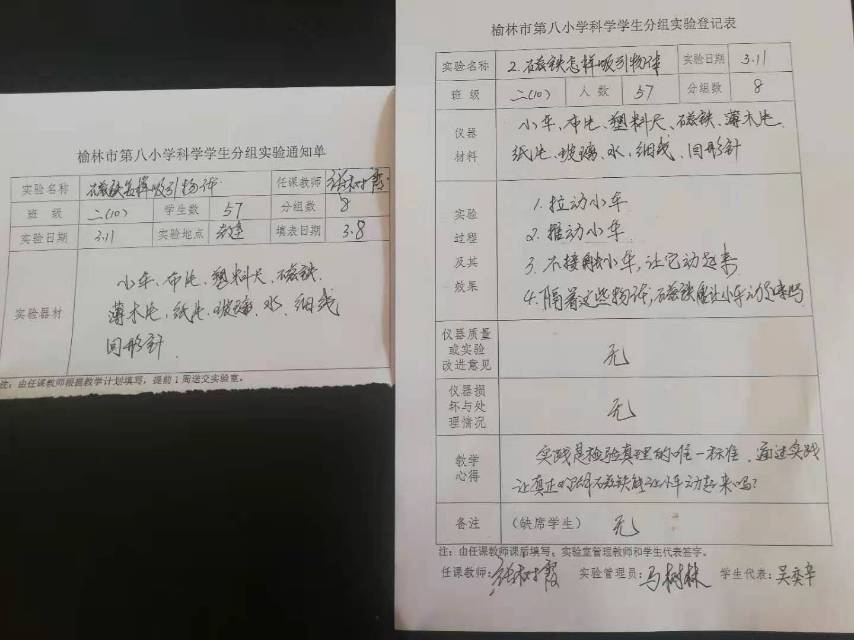 榆林市第八小学科学学生分组实验通知单
实验名称 磁铁怎样吸引物体 任课教师
班 级 二(10) 学生数 57 分组数 8
实验日期 3.11 实验地点 填表日期 3.8
实验器材
小车、布片、塑料尺、磁铁、
薄木片、纸片、玻璃、水、细线
回形针
注：由任课教师根据教学计划填写，提前1周送交实验室。
榆林市第八小学科学学生分组实验登记表
实验名称 2.磁铁怎样吸引物体 实验日期 3.11
班 级 二(10) 人 数 57 分组数 8
仪器
材料
小车、布片、塑料尺、磁铁、薄木片、
纸片、玻璃、水、细线、回形针
实验
过程
及其
效果
1.拉动小车
2.推动小车
3.不接触小车，让它动起来
4.隔着这些物体，磁铁能让小车动起来吗
仪器质量
或实验
改进意见
无
仪器损
坏与处
理情况
无
教学
心得
实践是检验真理的唯一标准，通过实践
让真正 磁铁能让小车动起来吗？
备注 （缺席学生） 无
注：由任课教师课后填写，实验室管理教师和学生代表签字。
任课教师： 实验管理员：马树林 学生代表：吴奕辛